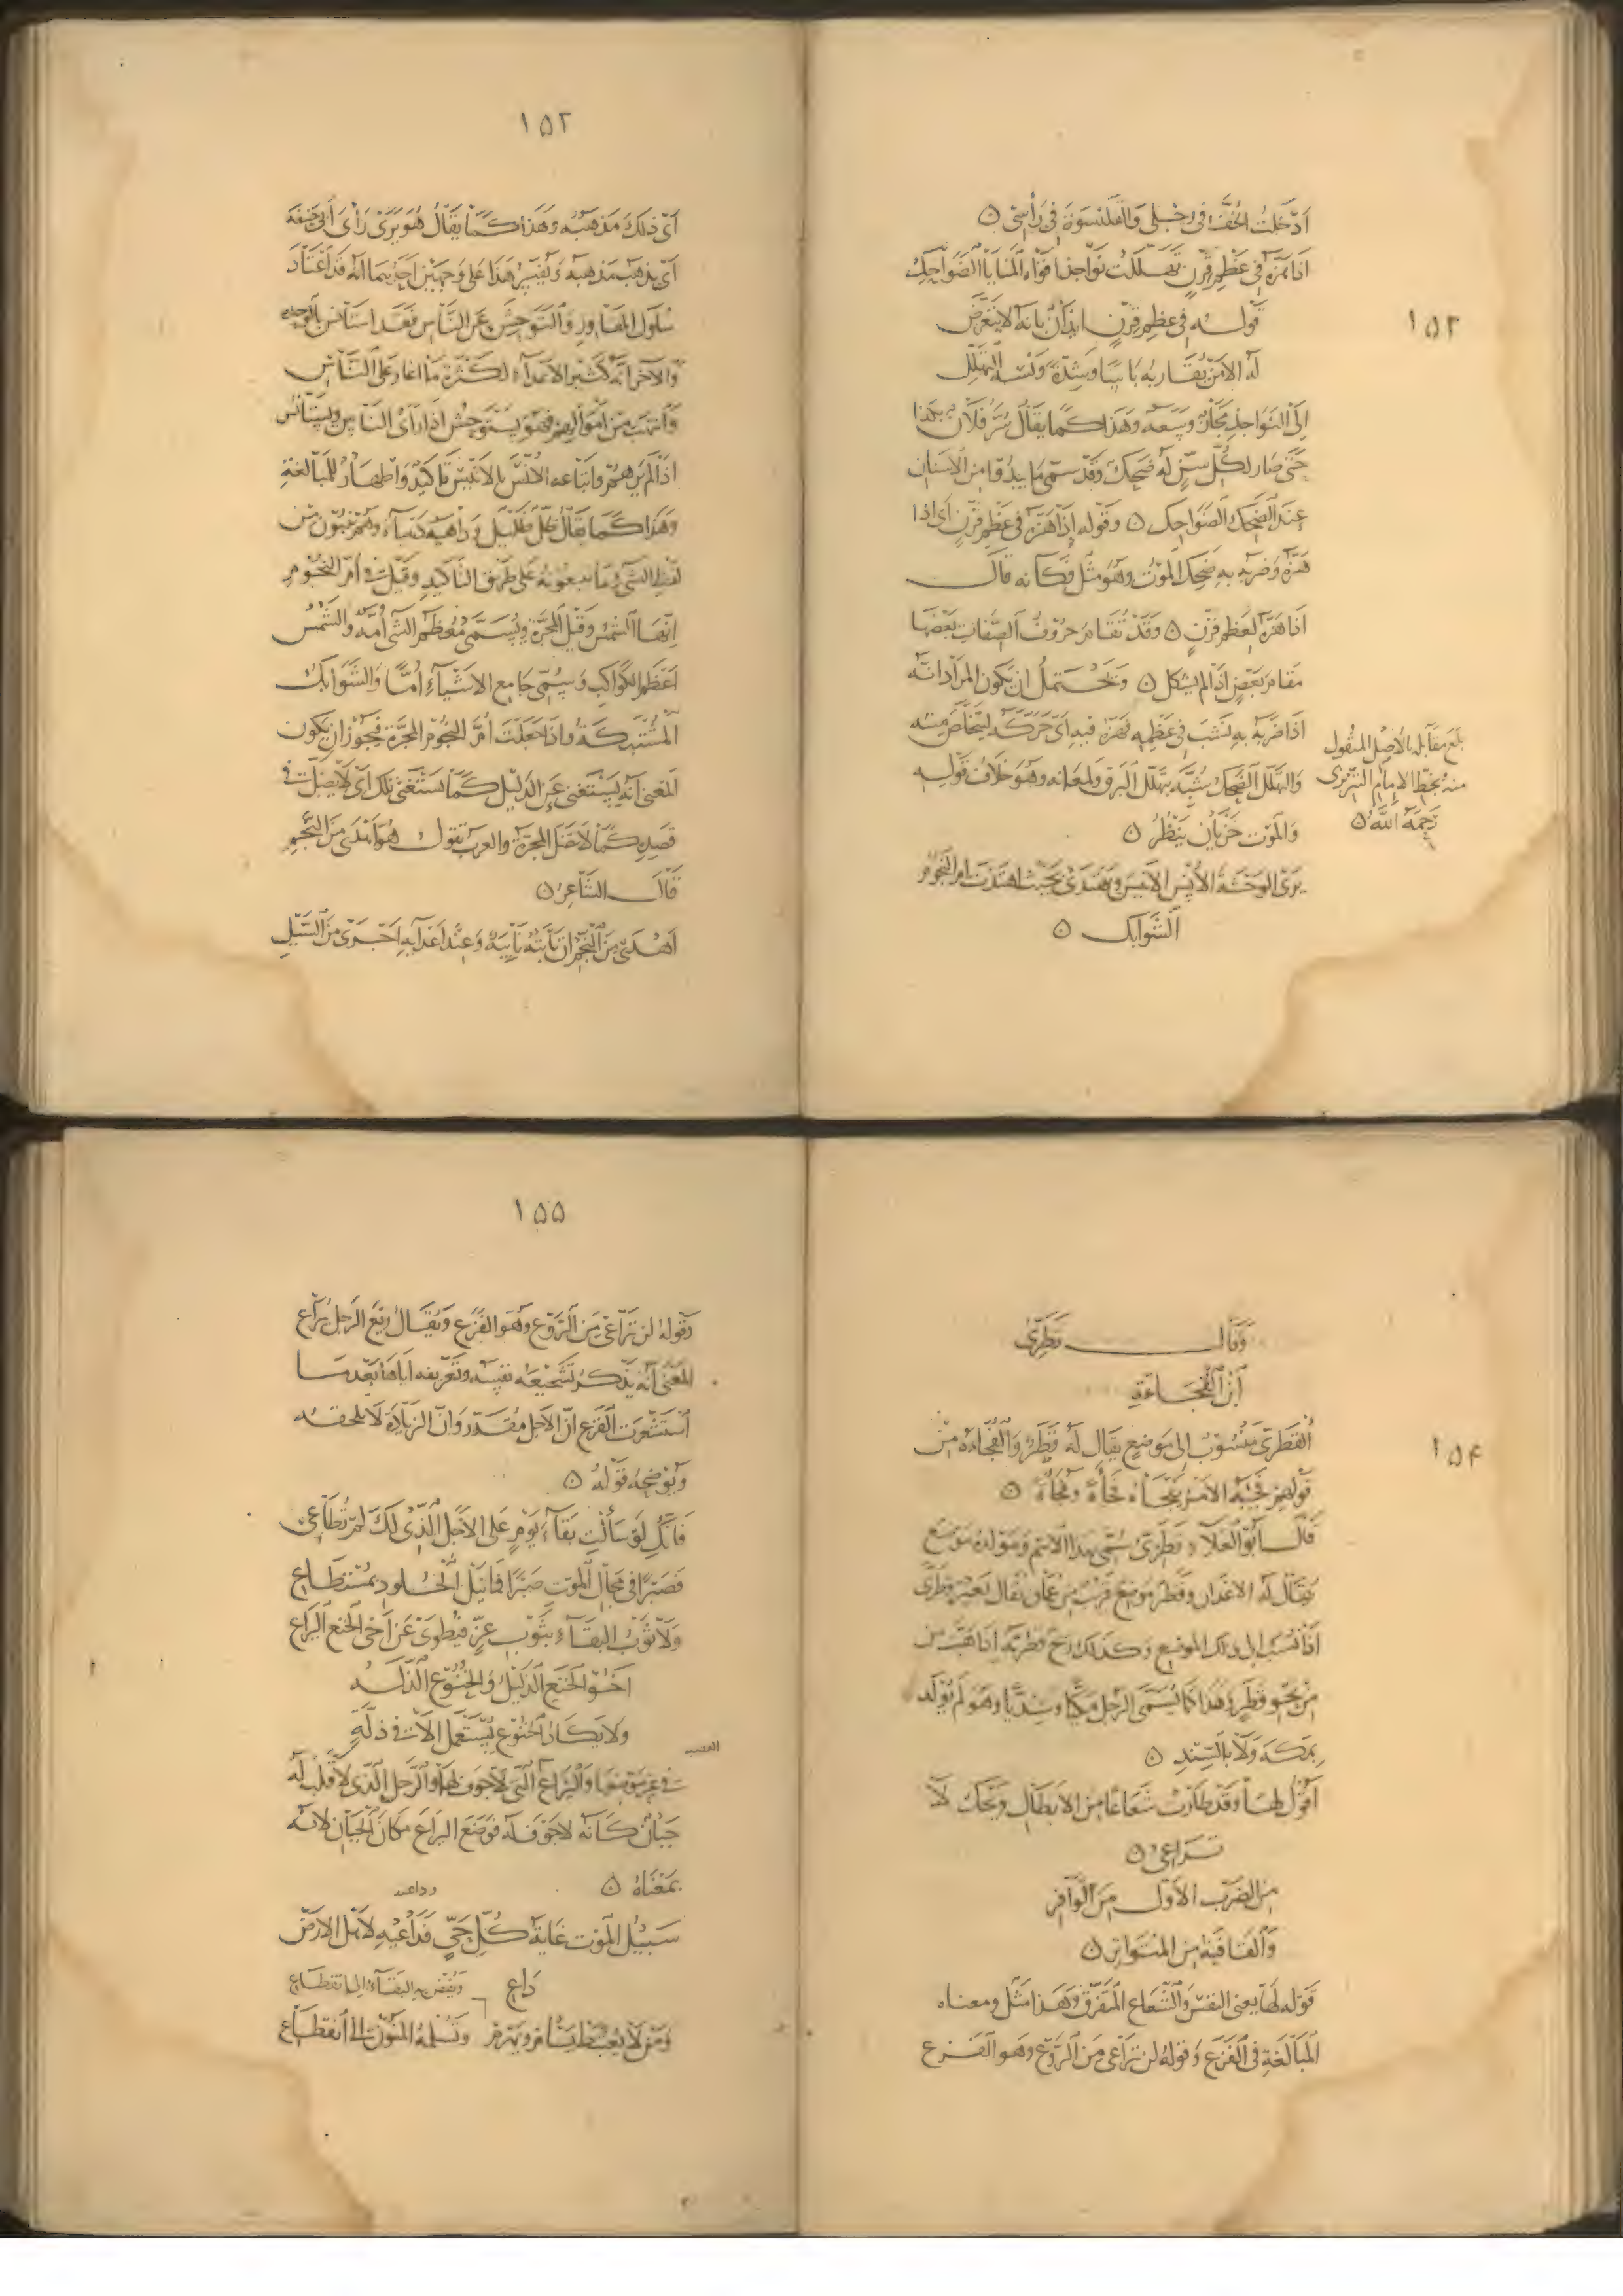 ١٥٢
ادخلت الخف في رجلي والقلنسوة في رأسي ن
اذا هزه في عظم قرن تهللت نواجذ افواه المنايا الضواحك
قوله في عظم قرن ايذان بانه لا يتعرض
له الا من يقاربه باسا وشدة ونسبه التهلل
الى النواجذ مجاز وسعه وهذا كما يقال سر فلان بكذا
حتى صار لكل سن له ضحك وقد سمى ما يبدو من الاسنان
عند الضحك الضواحك ن وقوله إذا هزه في عظم قرن اى اذا
هزه وضربه به ضحك الموت وهو مثل فكانه قال
اذا هزه لعظم قرن ن وقد تقام حروف الصفات بعضها
مقام بعض اذا لم يشكل ن ويحتمل ان يكون المراد انه
اذا ضربه به نشب في عظمه فهزه فيه اى حركه ليتخلص منه
والتهلل الضحك شبه بتهلل البرق ولمعانه وهو خلاف قوله
والموت خزيان ينظر ن
يرى الوحشة الأنس الانيس ويهتدى بحيث اهتدت ام النجوم
الشوابك ن
بلغ مقابله بالاصل المنقول
منه بخط الامام التبريزى
رحمه الله ن
١٥٣
اى ذلك مذهبه وهذا كما يقال هو يرى رأى أبى حنيفه
اى يذهب مذهبه وتفسير هذا على وجهين احدهما انه قد اعتاد
سلوك المفاوز والتوحش عن الناس فقد استانس بالوحده
والآخر انه كثير الاعداء لكثرة ما اغار على الناس
وانتهب من اموالهم فهو يستوحش اذا رأى الناس ويستانس
اذا لم يرهم واتباعه الانس بالانيس تاكيد واظهار للمبالغة
وهذا كما يقال ظل ظليل وداهيه دهياء وهم يبنون من
لفظ الشئ ما يتبعونه على طريق التاكيد وقيل في ام النجوم
انها الشمس وقيل المجرة ويسمى معظم الشئ امه والشمس
اعظم الكواكب ويسمى جامع الاشياء أما والشوابك
المشتبكة واذا جعلت ام النجوم المجرة فيجوز ان يكون
المعنى انه يستغنى عن الدليل كما تستغنى تلك اى لا يضل في
قصده كما لا تضل المجرة والعرب تقول هو اهدى من النجم
قال الشاعر ن
اهدى من النجم ان نابته نايبة وعند اعدايه اجرى من السيل
١٥٤
وقال قطرى
ابن الفجاءة
القطرى منسوب إلى موضع يقال له قطر والفجاءه من
قولهم فجئه الامر يفجأه فجأة وفجاة ن
قال ابو العلاء قطرى سمى بهذا الاسم ومولده موضع
يقال له الاعدان وقطر موضع قريب من عمان يقال بعير قطرى
اذا نسب إلى ذلك الموضع وكذلك ريح قطريه اذا هبت من
من نحو قطر وهذا كما يسمى الرجل مكيا وسنديا وهو لم يولد
بمكة ولا بالسند ن
اقول لها وقد طارت شعاعا من الابطال ويحك لا
تراعي ن
من الضرب الاول من الوافر
والقافية من المتواتر ن
قوله لها يعنى النفس والشعاع المتفرق وهذا مثل ومعناه
المبالغة في الفزع وقوله لن تراعى من الروع وهو الفزع
١٥٥
وقوله لن تراعى من الروع وهو الفزع ويقال ريع الرجل يراع
المعنى انه يذكر تشجيعه نفسه وتعريفه اياها بعد ما
استشعرت الفزع ان الاجل مقدر وان الزيادة لا تلحقه
ويوضحه قوله ن
فانك لو سألت بقاء يوم على الاجل الذى لك لم تطاعى
فصبرا في مجال الموت صبرا فما نيل الخلود بمستطاع
ولا ثوب البقاء بثوب عز فيطوى عن اخى الخنع اليراع
اخو الخنع الذليل والخنوع الذله
ولا يكاد الخنوع يستعمل الا في ذلة
القصب
في غير موضعها واليراع التى لا جوف لها والرجل الذى لا قلب له
جبان كانه لا جوف له فوضع اليراع مكان الجبان لانه
بمعناه ن
وداعيه
سبيل الموت غاية كل حى فداعيه لاهل الارض
داع
ويفض به البقاء الى انقطاع
ومن لا يعتبط يسام ويهرم وتسلمه المنون الى انقطاع